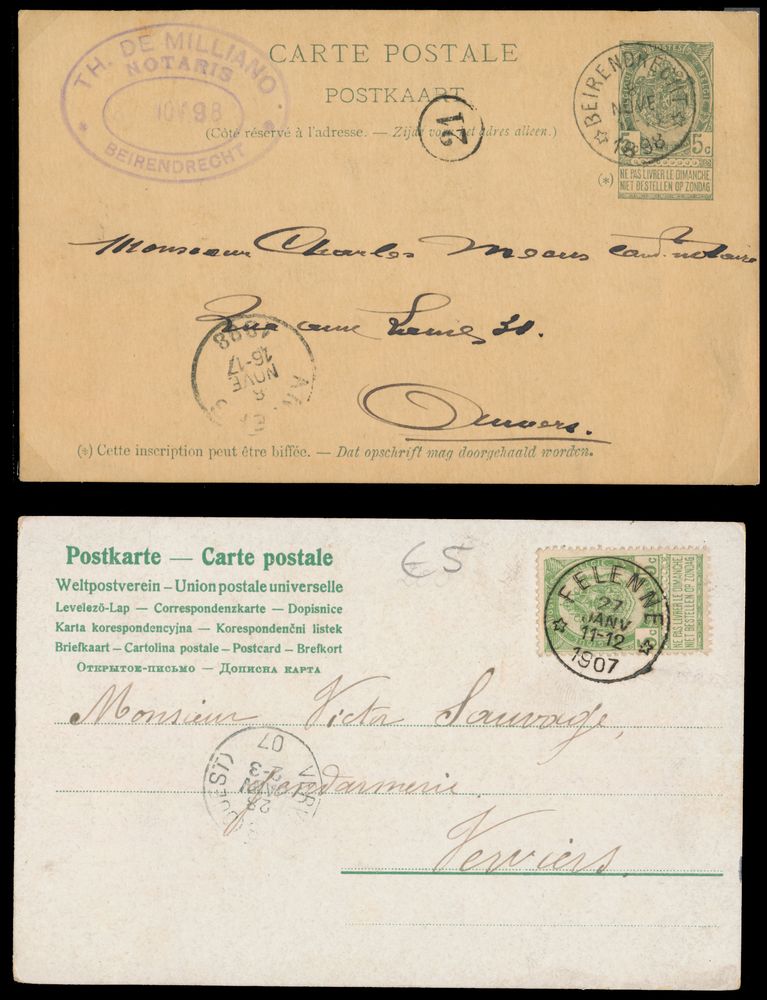 TH. DE MILLIANO
NOTARIS
NOV 98
BEIRENDRECHT
CARTE POSTALE
POSTKAART
(Côté réservé à l'adresse. — Zijde voor het adres alleen.)
21
BEIRENDRECHT
8
NOVE
1898
5 5c
(*) NE PAS LIVRER LE DIMANCHE
NIET BESTELLEN OP ZONDAG
Monsieur Charles Meeus cand. notaire
Rue 30.
Anvers.
1898
16-17
NOVE
8
(*) Cette inscription peut être biffée. — Dat opschrift mag doorgehaald worden.
Postkarte — Carte postale
Weltpostverein – Union postale universelle
Levelező-Lap — Correspondenzkarte — Dopisnice
Karta korespondencyjna — Korespondenční listek
Briefkaart — Cartolina postale — Postcard — Brefkort
Открытое-письмо — Дописна карта
€5
FELENNE
27
JANV
11-12
1907
NE PAS LIVRER LE DIMANCHE
NIET BESTELLEN OP ZONDAG
Monsieur Victor Sauvage,
Gendarmerie.
Verviers.
VERV (OUEST)
28
2-3
07